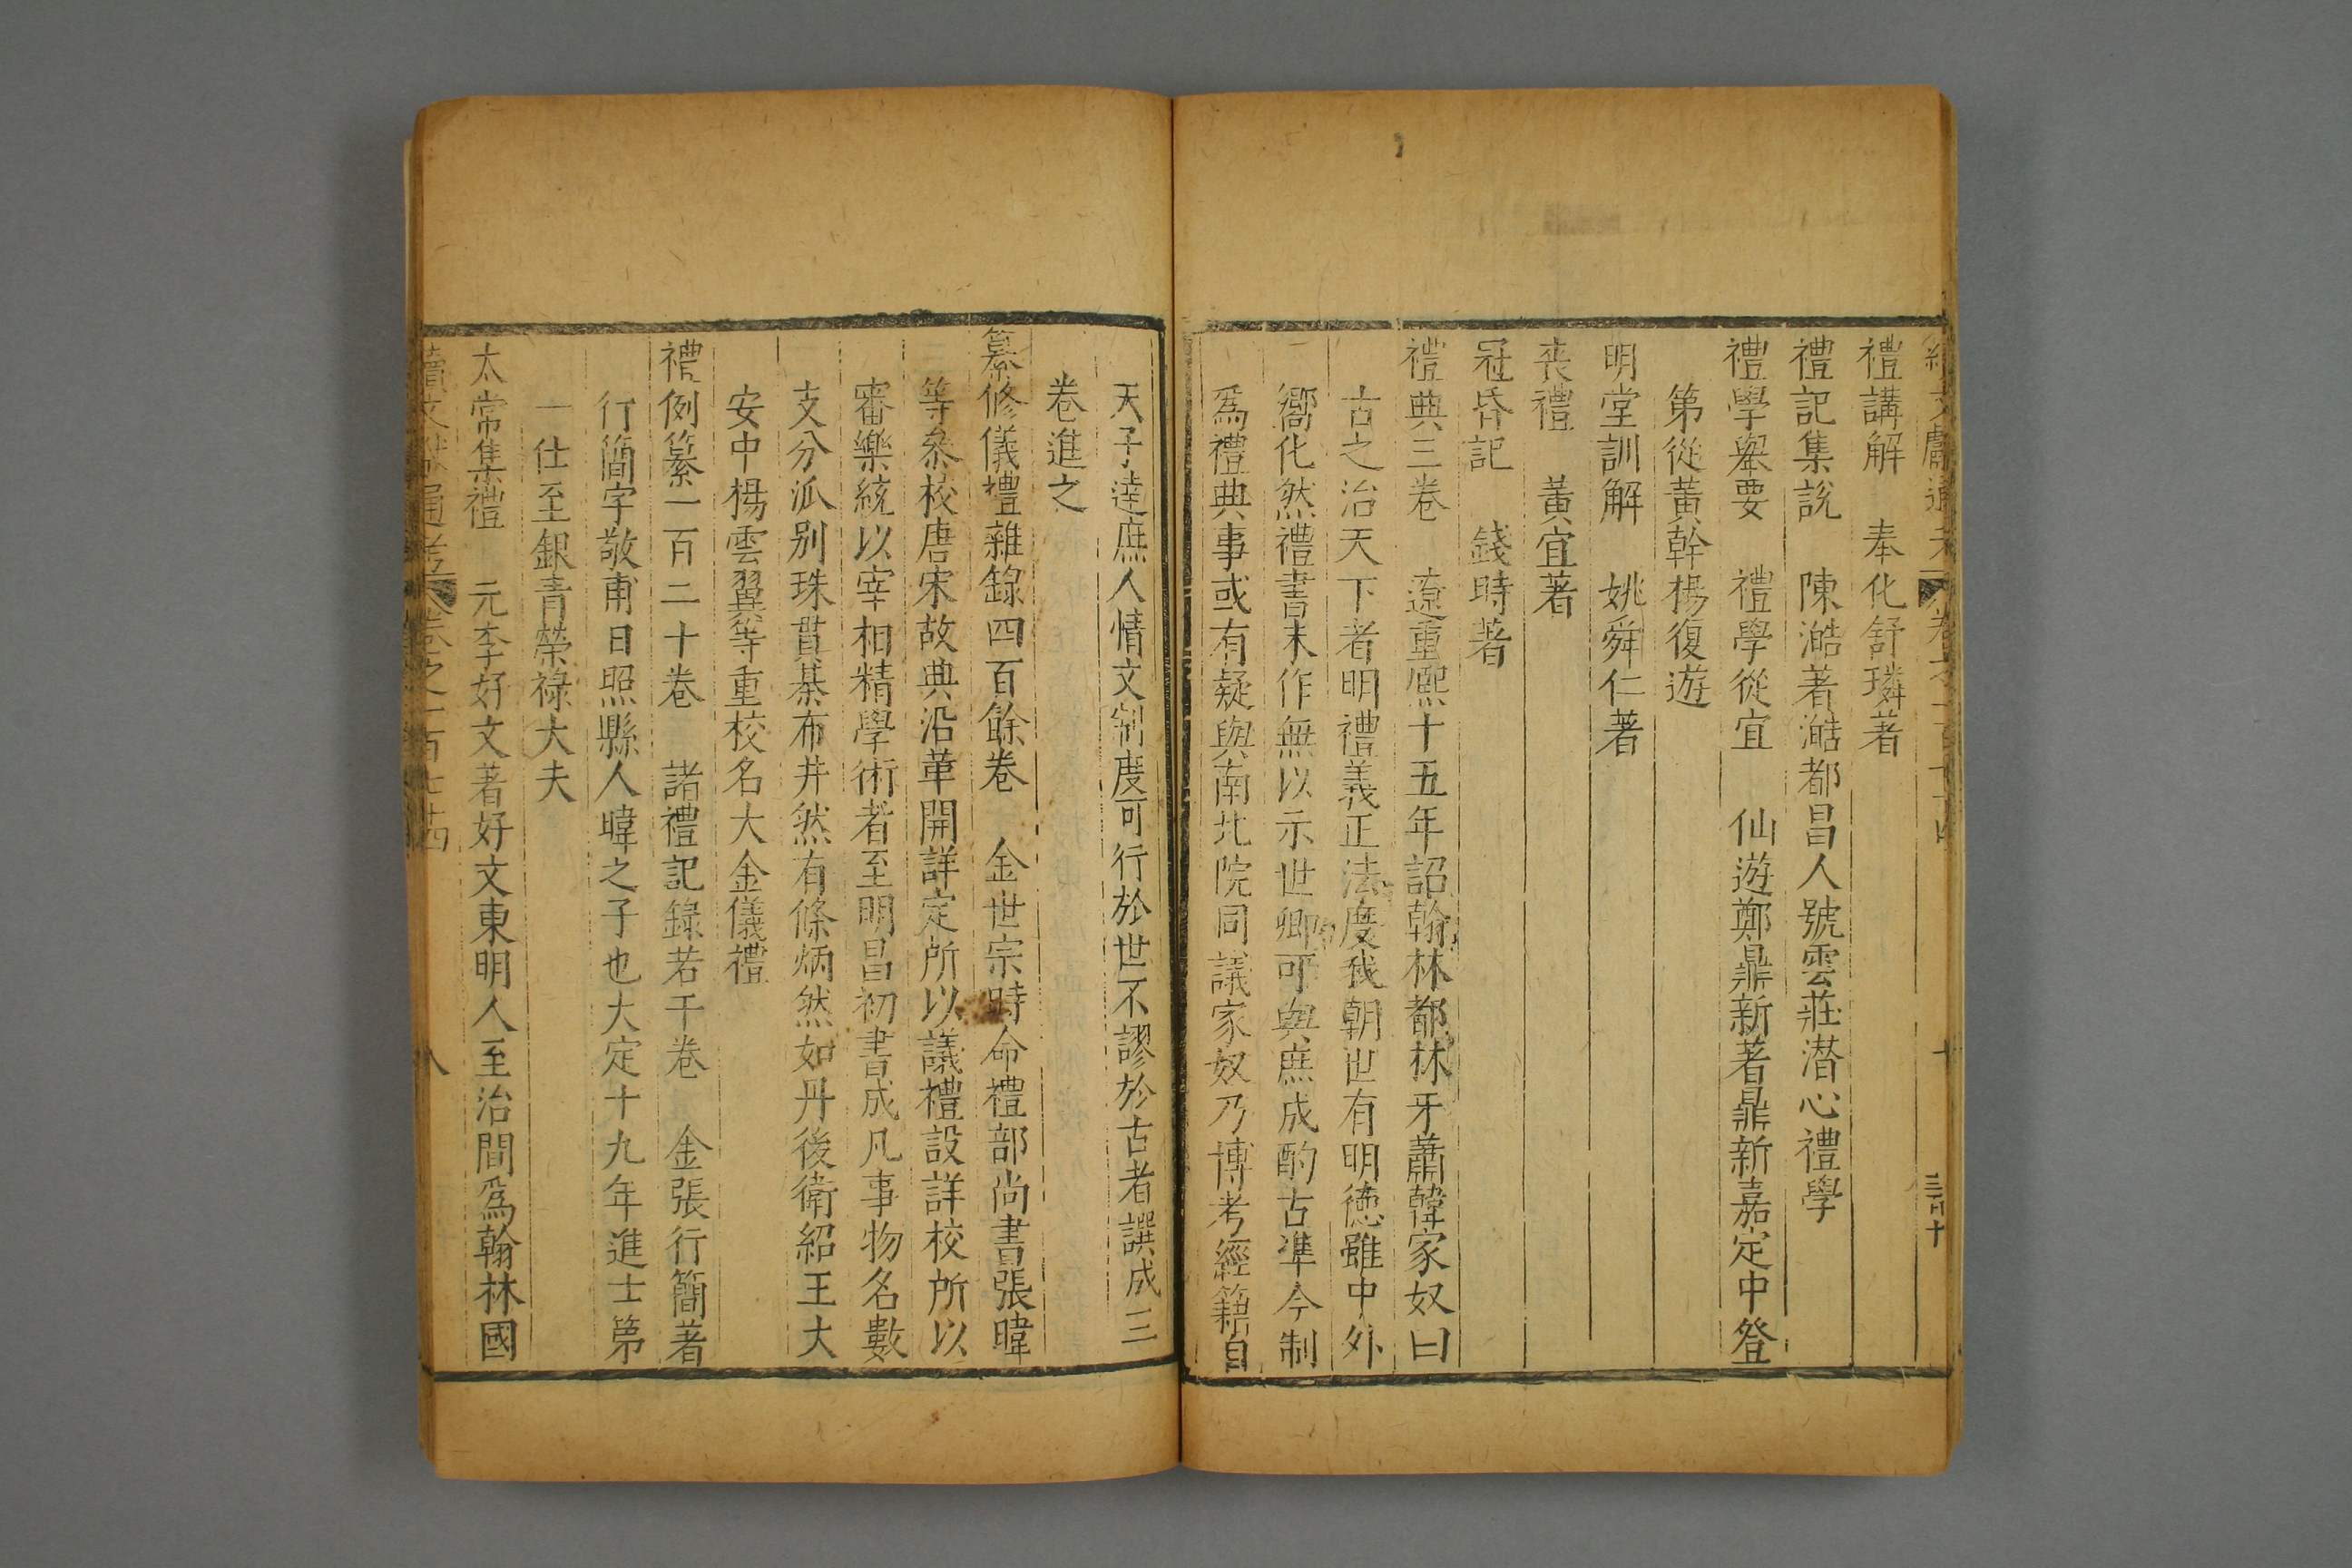 禮講解　奉化舒璘著
禮記集說　陳澔著澔都昌人號雲莊潜心禮學
禮學舉要　禮學從宜　仙遊鄭鼎新著鼎新嘉定中登
第從黃幹楊復遊
明堂訓解　姚舜仁著
喪禮　黃宜著
冠昏記　錢時著
禮典三卷　遼重熙十五年詔翰林都林牙蕭韓家奴曰
古之治天下者明禮義正法度我朝世有明德雖中外
嚮化然禮書未作無以示世卿可與庶成酌古準今制
爲禮典事或有疑與南北院同議家奴乃博考經籍自
天子達庶人情文制度可行於世不謬於古者譔成三
卷進之
纂修儀禮雜錄四百餘卷　金世宗時命禮部尚書張暐
等叅校唐宋故典沿革開詳定所以議禮設詳校所以
審樂統以宰相精學術者至明昌初書成凡事物名數
支分派别珠貫棊布井然有條炳然如丹後衛紹王大
安中楊雲翼等重校名大金儀禮
禮例纂一百二十卷　諸禮記錄若干卷　金張行簡著
行簡字敬甫日照縣人暐之子也大定十九年進士第
一仕至銀青榮祿大夫
太常集禮　元李好文著好文東明人至治間爲翰林國
續文獻通考卷之一百七十四　八